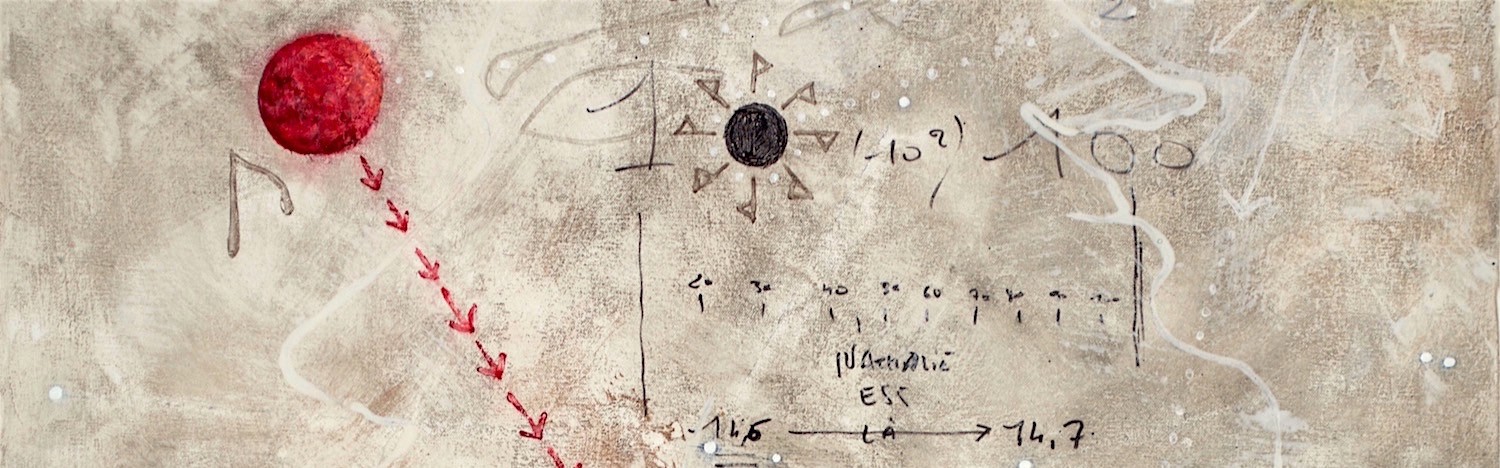 2
1 (-10²) 100
20 30 40 50 60 70 80 90 100
NATHALIE
EST
LÀ
14,6 → 14,7